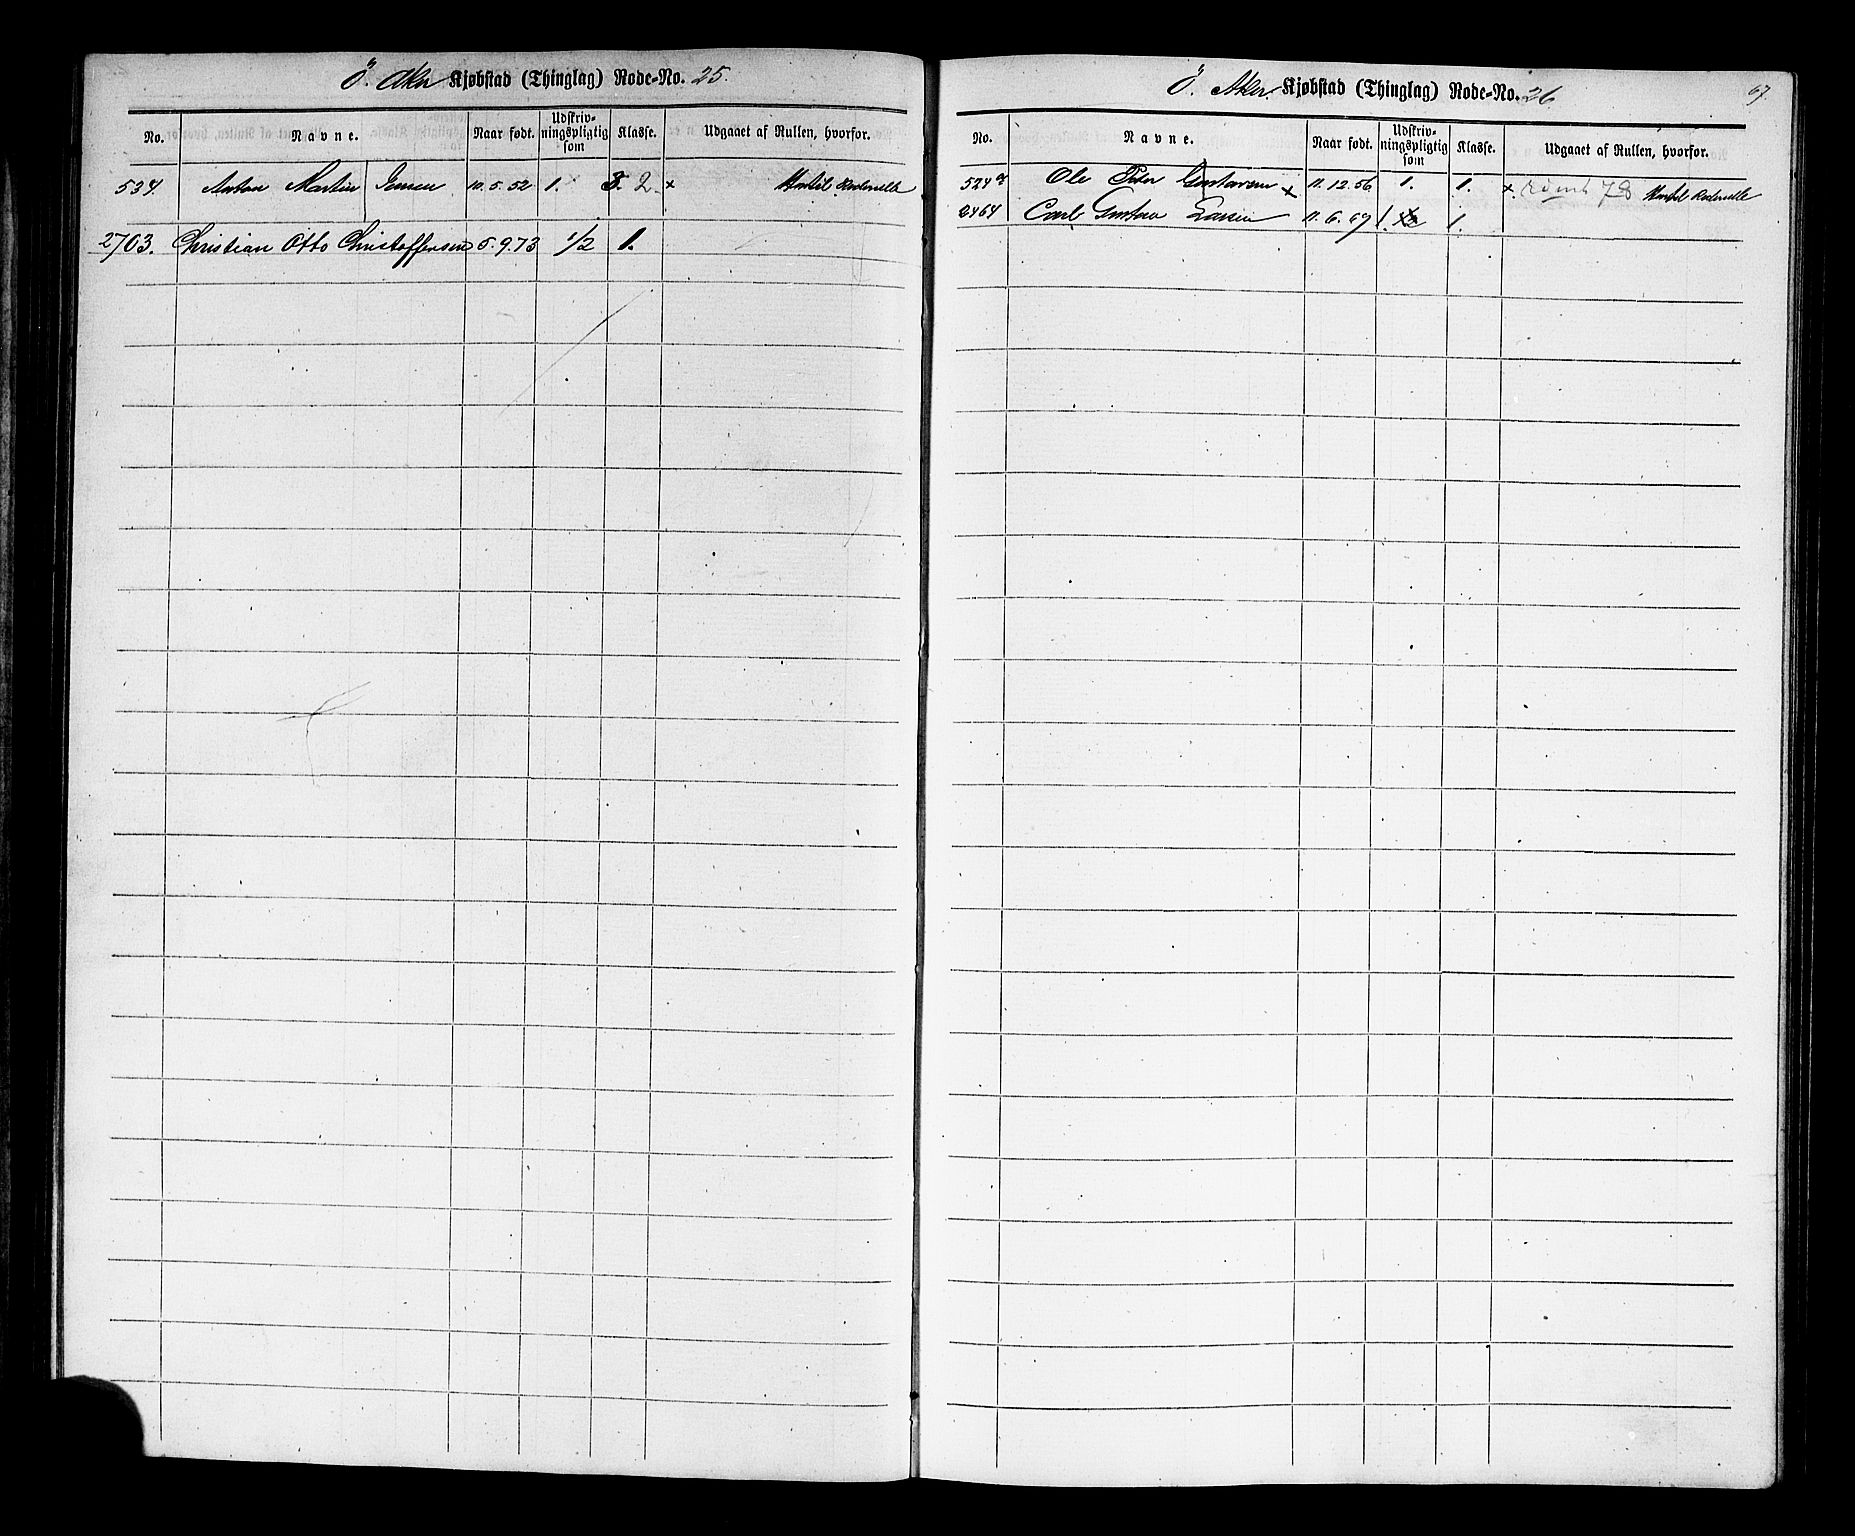 Ö. Aker Kjøbstad (Thinglag) Rode-No. 25.
No. Navne. Naar født. Udskriv-ningspligtig som Klasse. Udgaaet af Rullen, hvorfor.
534. Anton Martin Jensen 10.5.52 1. 2. x
2703. Christian Otto Christoffersen 5.9.73 1/2 1.
Ö. Aker. Kjøbstad (Thinglag) Rode-No. 26
67.
No. Navne. Naar født. Udskriv-ningspligtig som Klasse. Udgaaet af Rullen, hvorfor.
524a Ole Peter Gustavsen x 11.12.56 1. 1. x 78
2464 Carl Gustav Larsen 11.6.67 1. 1.